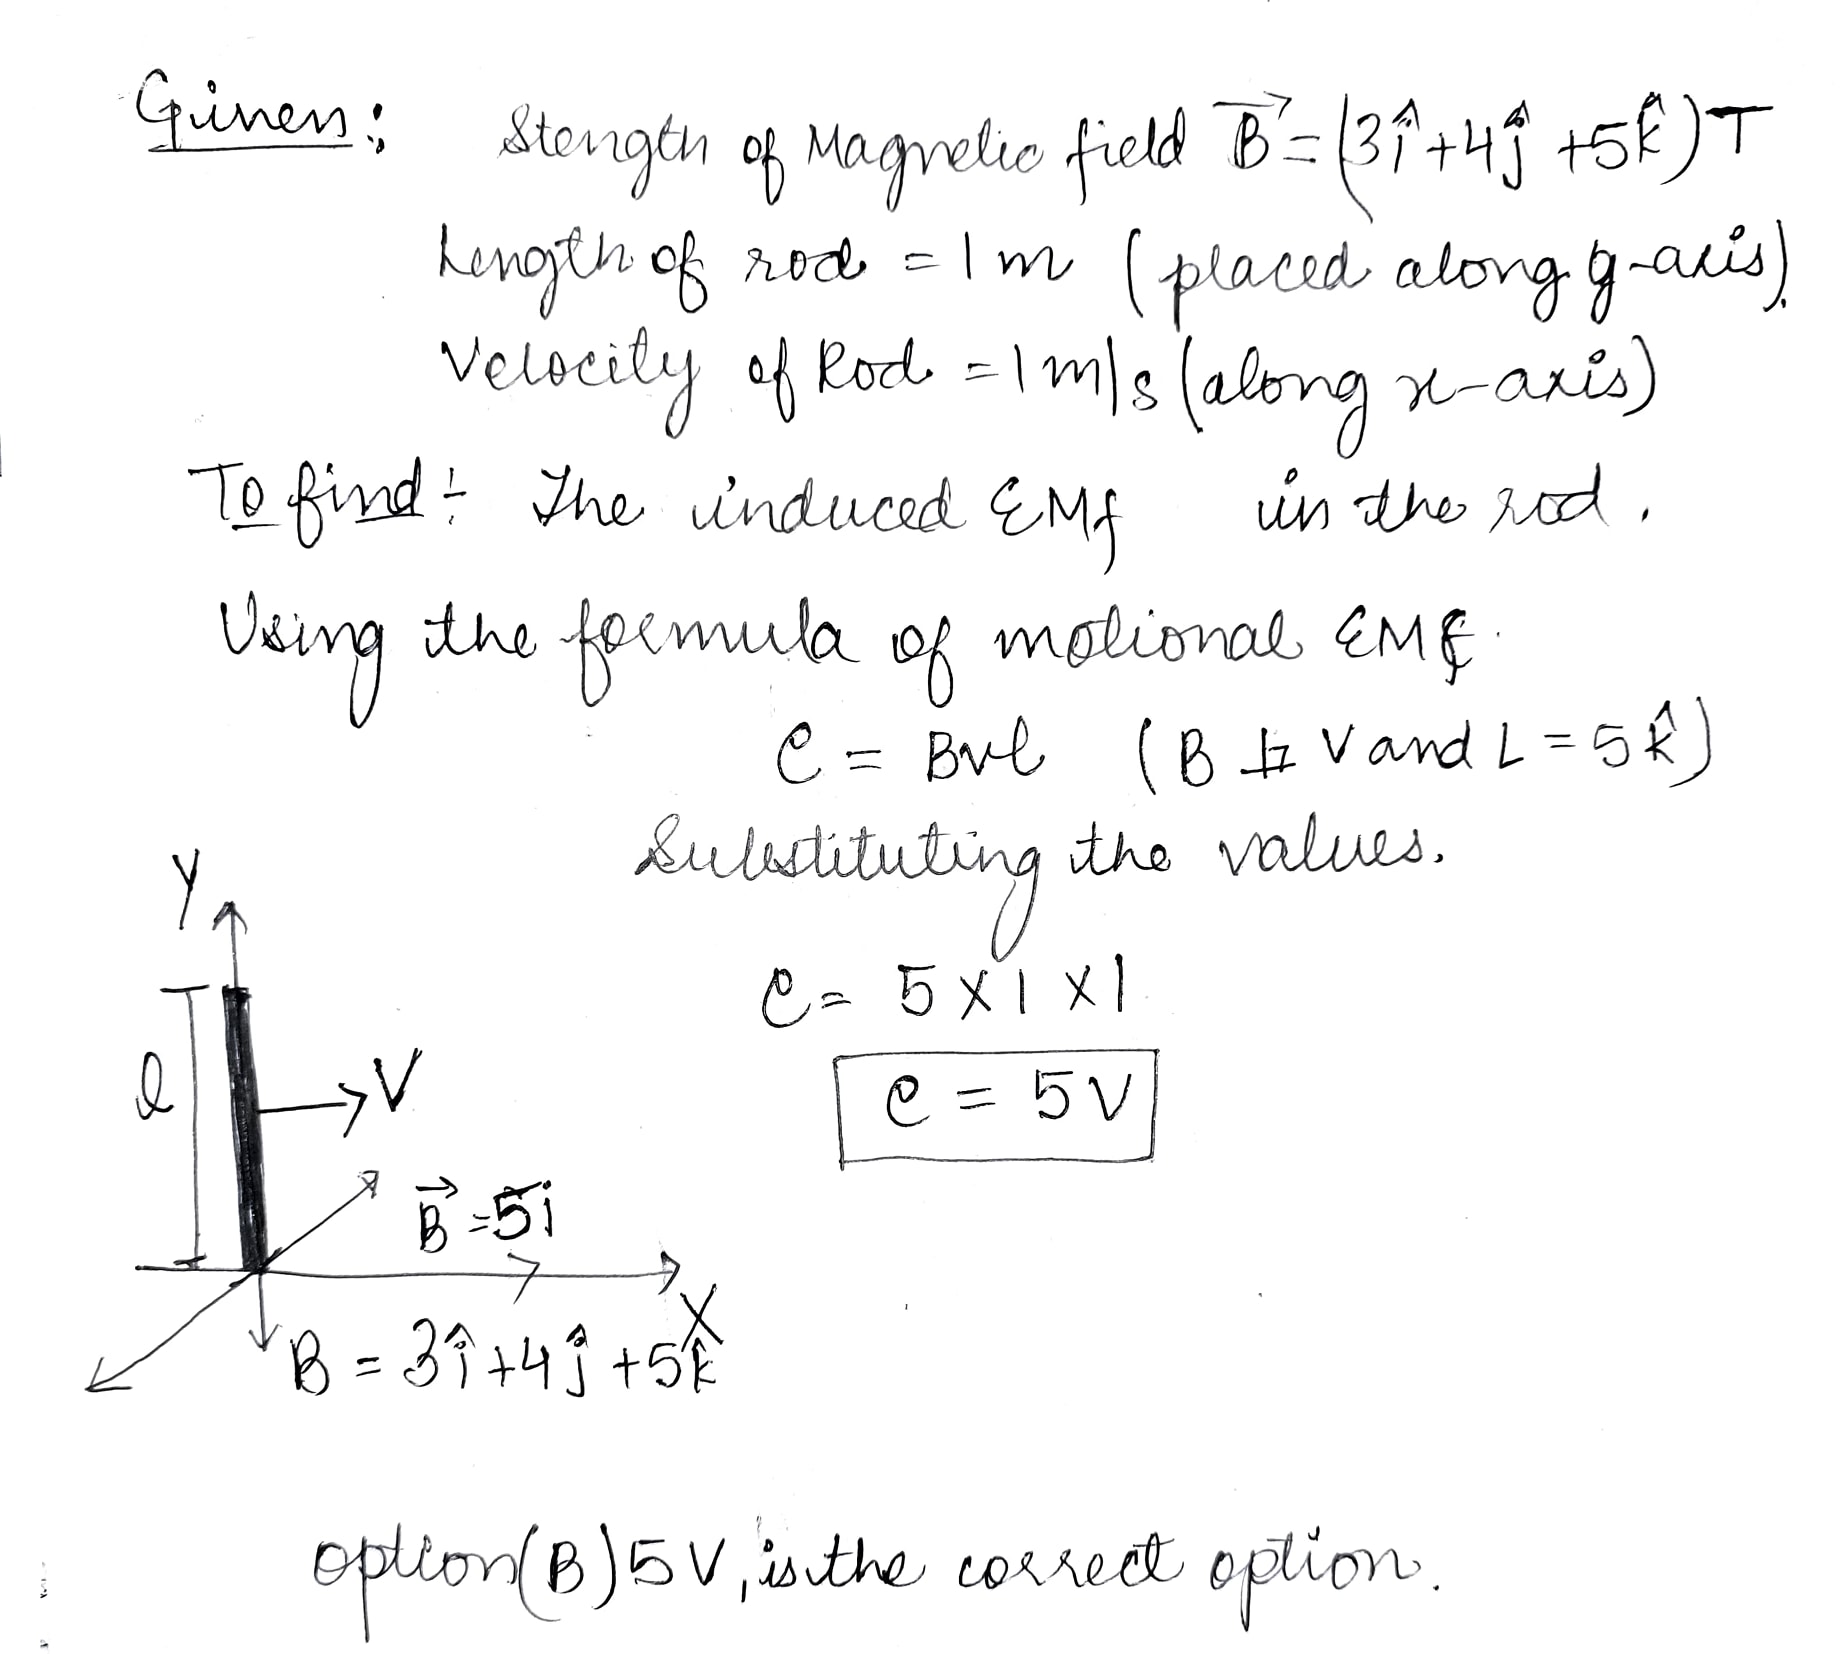 Given:
Stength of Magnetic field B⃗ = (3î + 4ĵ + 5k̂) T
Length of rod = 1 m (placed along y-axis).
Velocity of Rod = 1 m/s (along x-axis)
To find: The induced EMf in the rod.
Using the formula of motional EMf.
e = Bvl (B ⊥ V and L = 5k̂)
Substituting the values.
e = 5 × 1 × 1
e = 5V
Y
l
V
B⃗ = 5i
X
B = 3î + 4ĵ + 5k̂
option (B) 5 V, is the correct option.